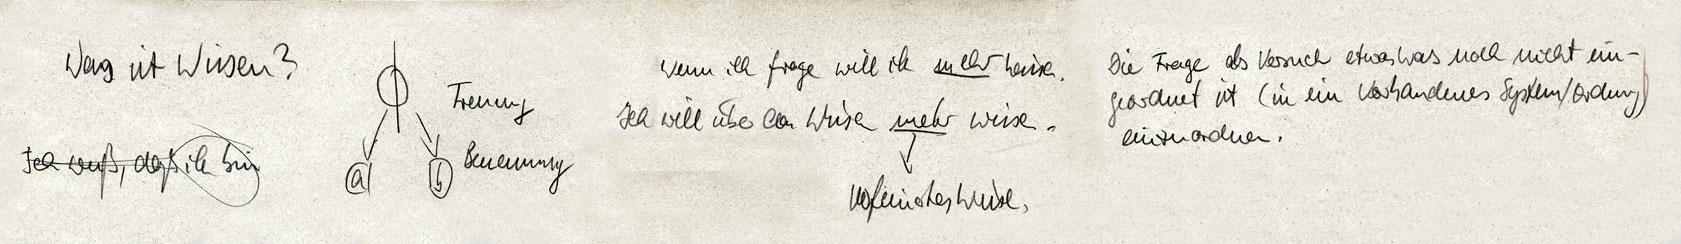 Was ist Wissen?
Ich weiß, daß ich bin
Trennung
Benennung
a
b
wenn ich frage will ich mehr wissen.
Ich will über das Wissen mehr wissen.
Verfeinertes Wissen.
Die Frage als Versuch etwas was noch nicht ein-
geordnet ist (in ein vorhandenes System/Ordnung)
einzuordnen.